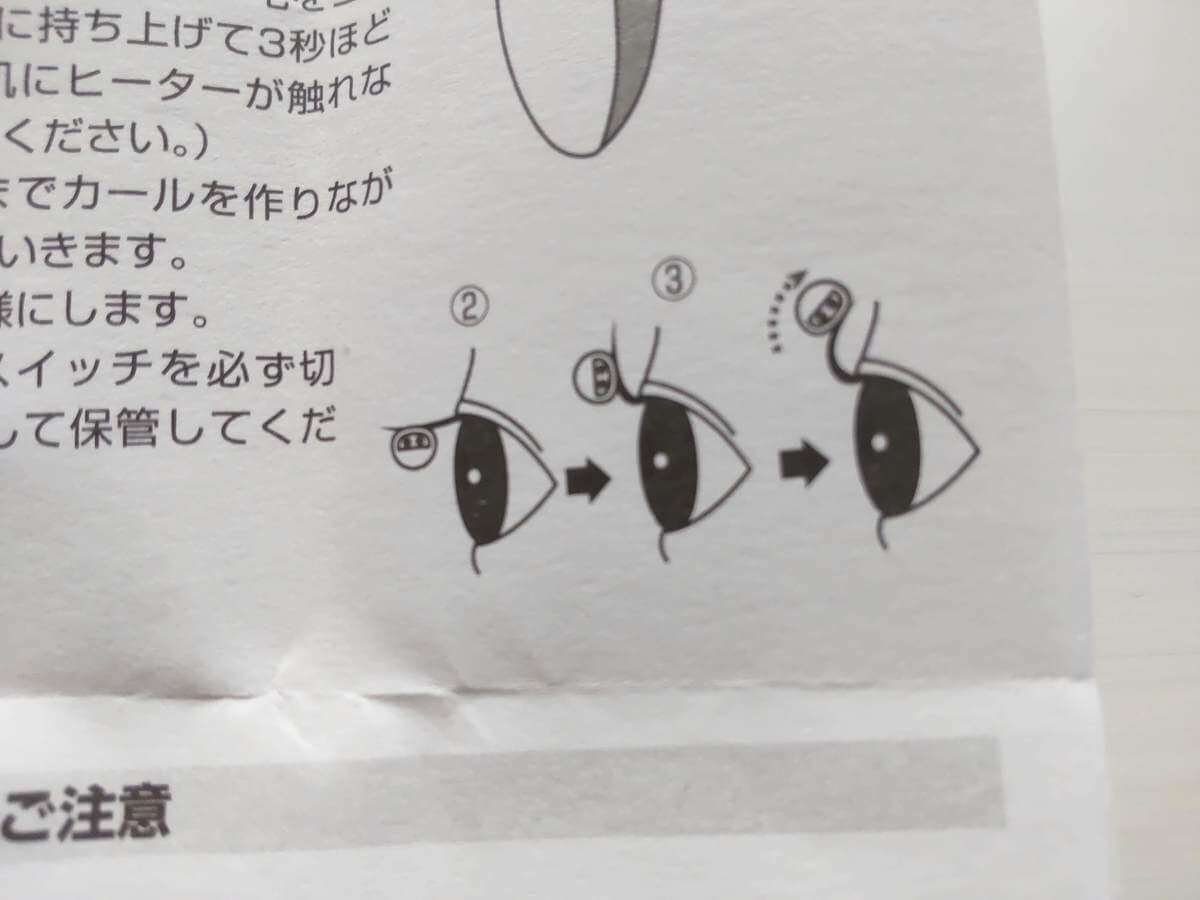 に持ち上げて3秒ほど
肌にヒーターが触れな
ください。)
までカールを作りなが
いきます。
様にします。
スイッチを必ず切
して保管してくだ
②
③
ご注意